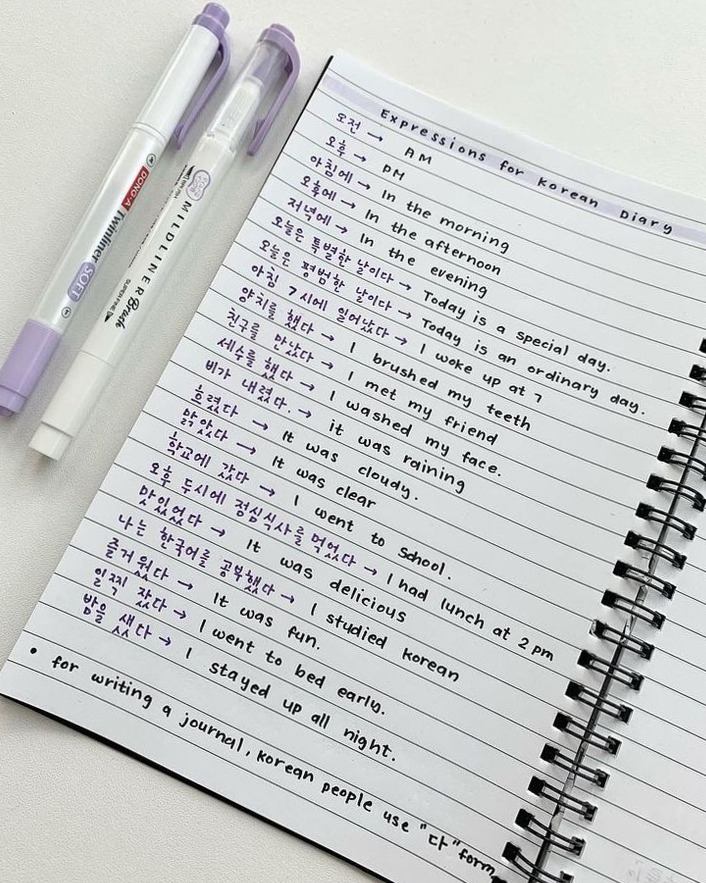 Expressions for Korean Diary
오전 → AM
오후 → PM
아침에 → In the morning
오후에 → In the afternoon
저녁에 → In the evening
오늘은 특별한 날이다 → Today is a special day.
오늘은 평범한 날이다 → Today is an ordinary day.
아침 7시에 일어났다 → I woke up at 7
양치를 했다 → I brushed my teeth
친구를 만났다 → I met my friend
세수를 했다 → I washed my face.
비가 내렸다. → it was raining
흐렸다 → It was cloudy.
맑았다 → It was clear
학교에 갔다 → I went to School.
오후 두시에 점심식사를 먹었다 → I had lunch at 2 pm
맛있었다 → It was delicious
나는 한국어를 공부했다 → I studied Korean
즐거웠다 → It was fun.
일찍 잤다 → I went to bed early.
밤을 샜다 → I stayed up all night.
• for writing a journal, korean people use "다" form
DONG-A Twinliner SOFT
MILDLINER Brush
SUPER FINE